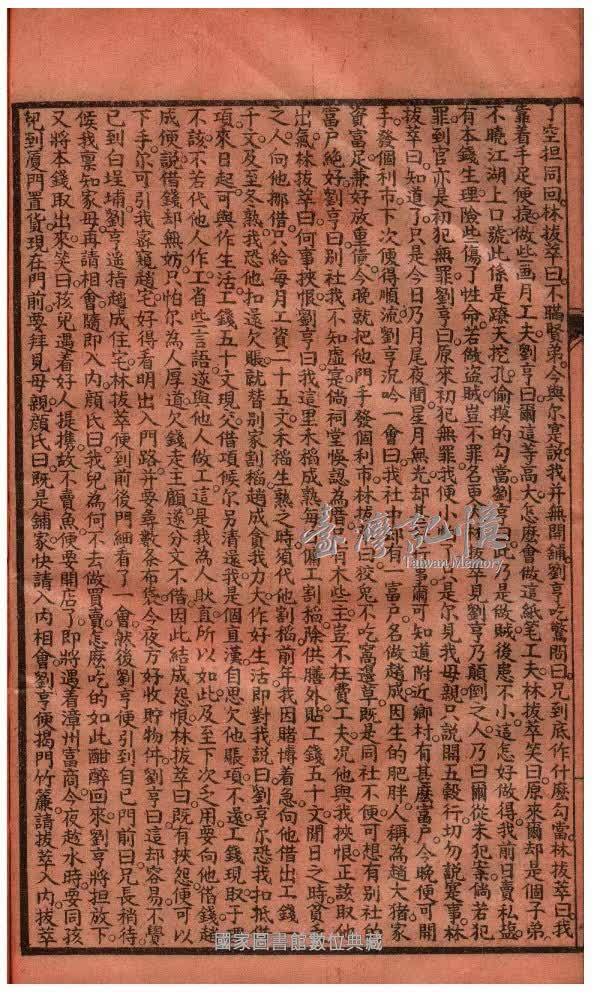 了空担同回。林拔萃曰不瞞賢弟。今與尔寔説我并無開鋪。劉亨吃驚問曰。兄到底作什麽勾當林拔萃曰我
靠着手足便捷。做些画月工夫。劉亨曰爾這等高大。怎麽會做這紙笔工夫林拔萃笑曰原來爾却是個子弟
不曉江湖上口號此係是蹺天挖孔。偷摸的勾當。劉亨曰此乃是做賊後患不小。這怎好做得我前日賣私塩
有本錢生理險些傷了性命若做盗賊豈不罪名更
林拔萃見劉亨乃顛倒之人。乃曰爾從未犯案倘若犯
罪到官亦是初犯無罪劉亨曰原來初犯無罪我便小
是尔見我母親只説開五穀行切勿説寔事林
拔萃曰知道了。只是今日乃月尾夜間星月無光却
行事爾可知道附近鄉村有甚麽富戶今晚便可開
手。發個利市。下次便得順流劉亨沉吟一會曰我社中
有一富戶名做趙成因生的肥胖人稱為趙大猪家
資富足兼好放重債今晚就把他門手發個利市林拔
曰狡兔不吃窩邊草。既是同社不便可想有别社的
富戶絶好劉亨曰别社我不知虚寔倘祠堂悮認為
有木些主豈不枉費工夫况他與我挾恨正該取他
出氣林拔萃曰何事挾恨劉亨曰我這里禾稻成熟每
偏工割稻除供膳外貼工錢五十文閒日之時貧
之人。向他挪借。只給每月工資二十五文禾稻生熟之時須代他割稻前年我因賭博着急向他借出工錢
千文及至冬熟我恐他扣還欠賬就替别家割稻趙成貪我力大作好生活即對我説曰劉亨尔恐我扣抵
項來日起可與作生活工錢五十文現交借項候尔另清還我是個直漢自思欠他賬項不還工錢現取于
不該不若代他人作工省些言語遂與他人做工這是我為人耿直所以如此及至下次乏用要向他借錢趙
成便説借錢却無妨只怕尔為人厚道欠錢走主顧遂分文不借因此結成怨恨林拔萃曰既有挾怨便可以
下手。尔可引我窓窺趙宅好得看明出入門路并要尋數条布袋今夜方好收貯物件劉亨曰這却容易不覺
已到白埕埔劉亨遥指趙成住宅林拔萃便到前後門細看了一會然後劉亨便引到自己門前曰兄長稍待
候我禀知家母再請相會隨即入内顔氏曰我兒為何不去做買賣怎麽吃的如此酣醉回來劉亨將担放下
又將本錢取出來笑曰孩兒遇着好人提携故不賣魚便要開店了即將遇着漳州富商今夜趂水時要同孩
兒到厦門置貨現在門前要拜見母親顔氏曰既是鋪家快請入内相會劉亨便揭門竹簾請拔萃入内拔萃
臺灣記憶
Taiwan Memory
國家圖書館數位典藏